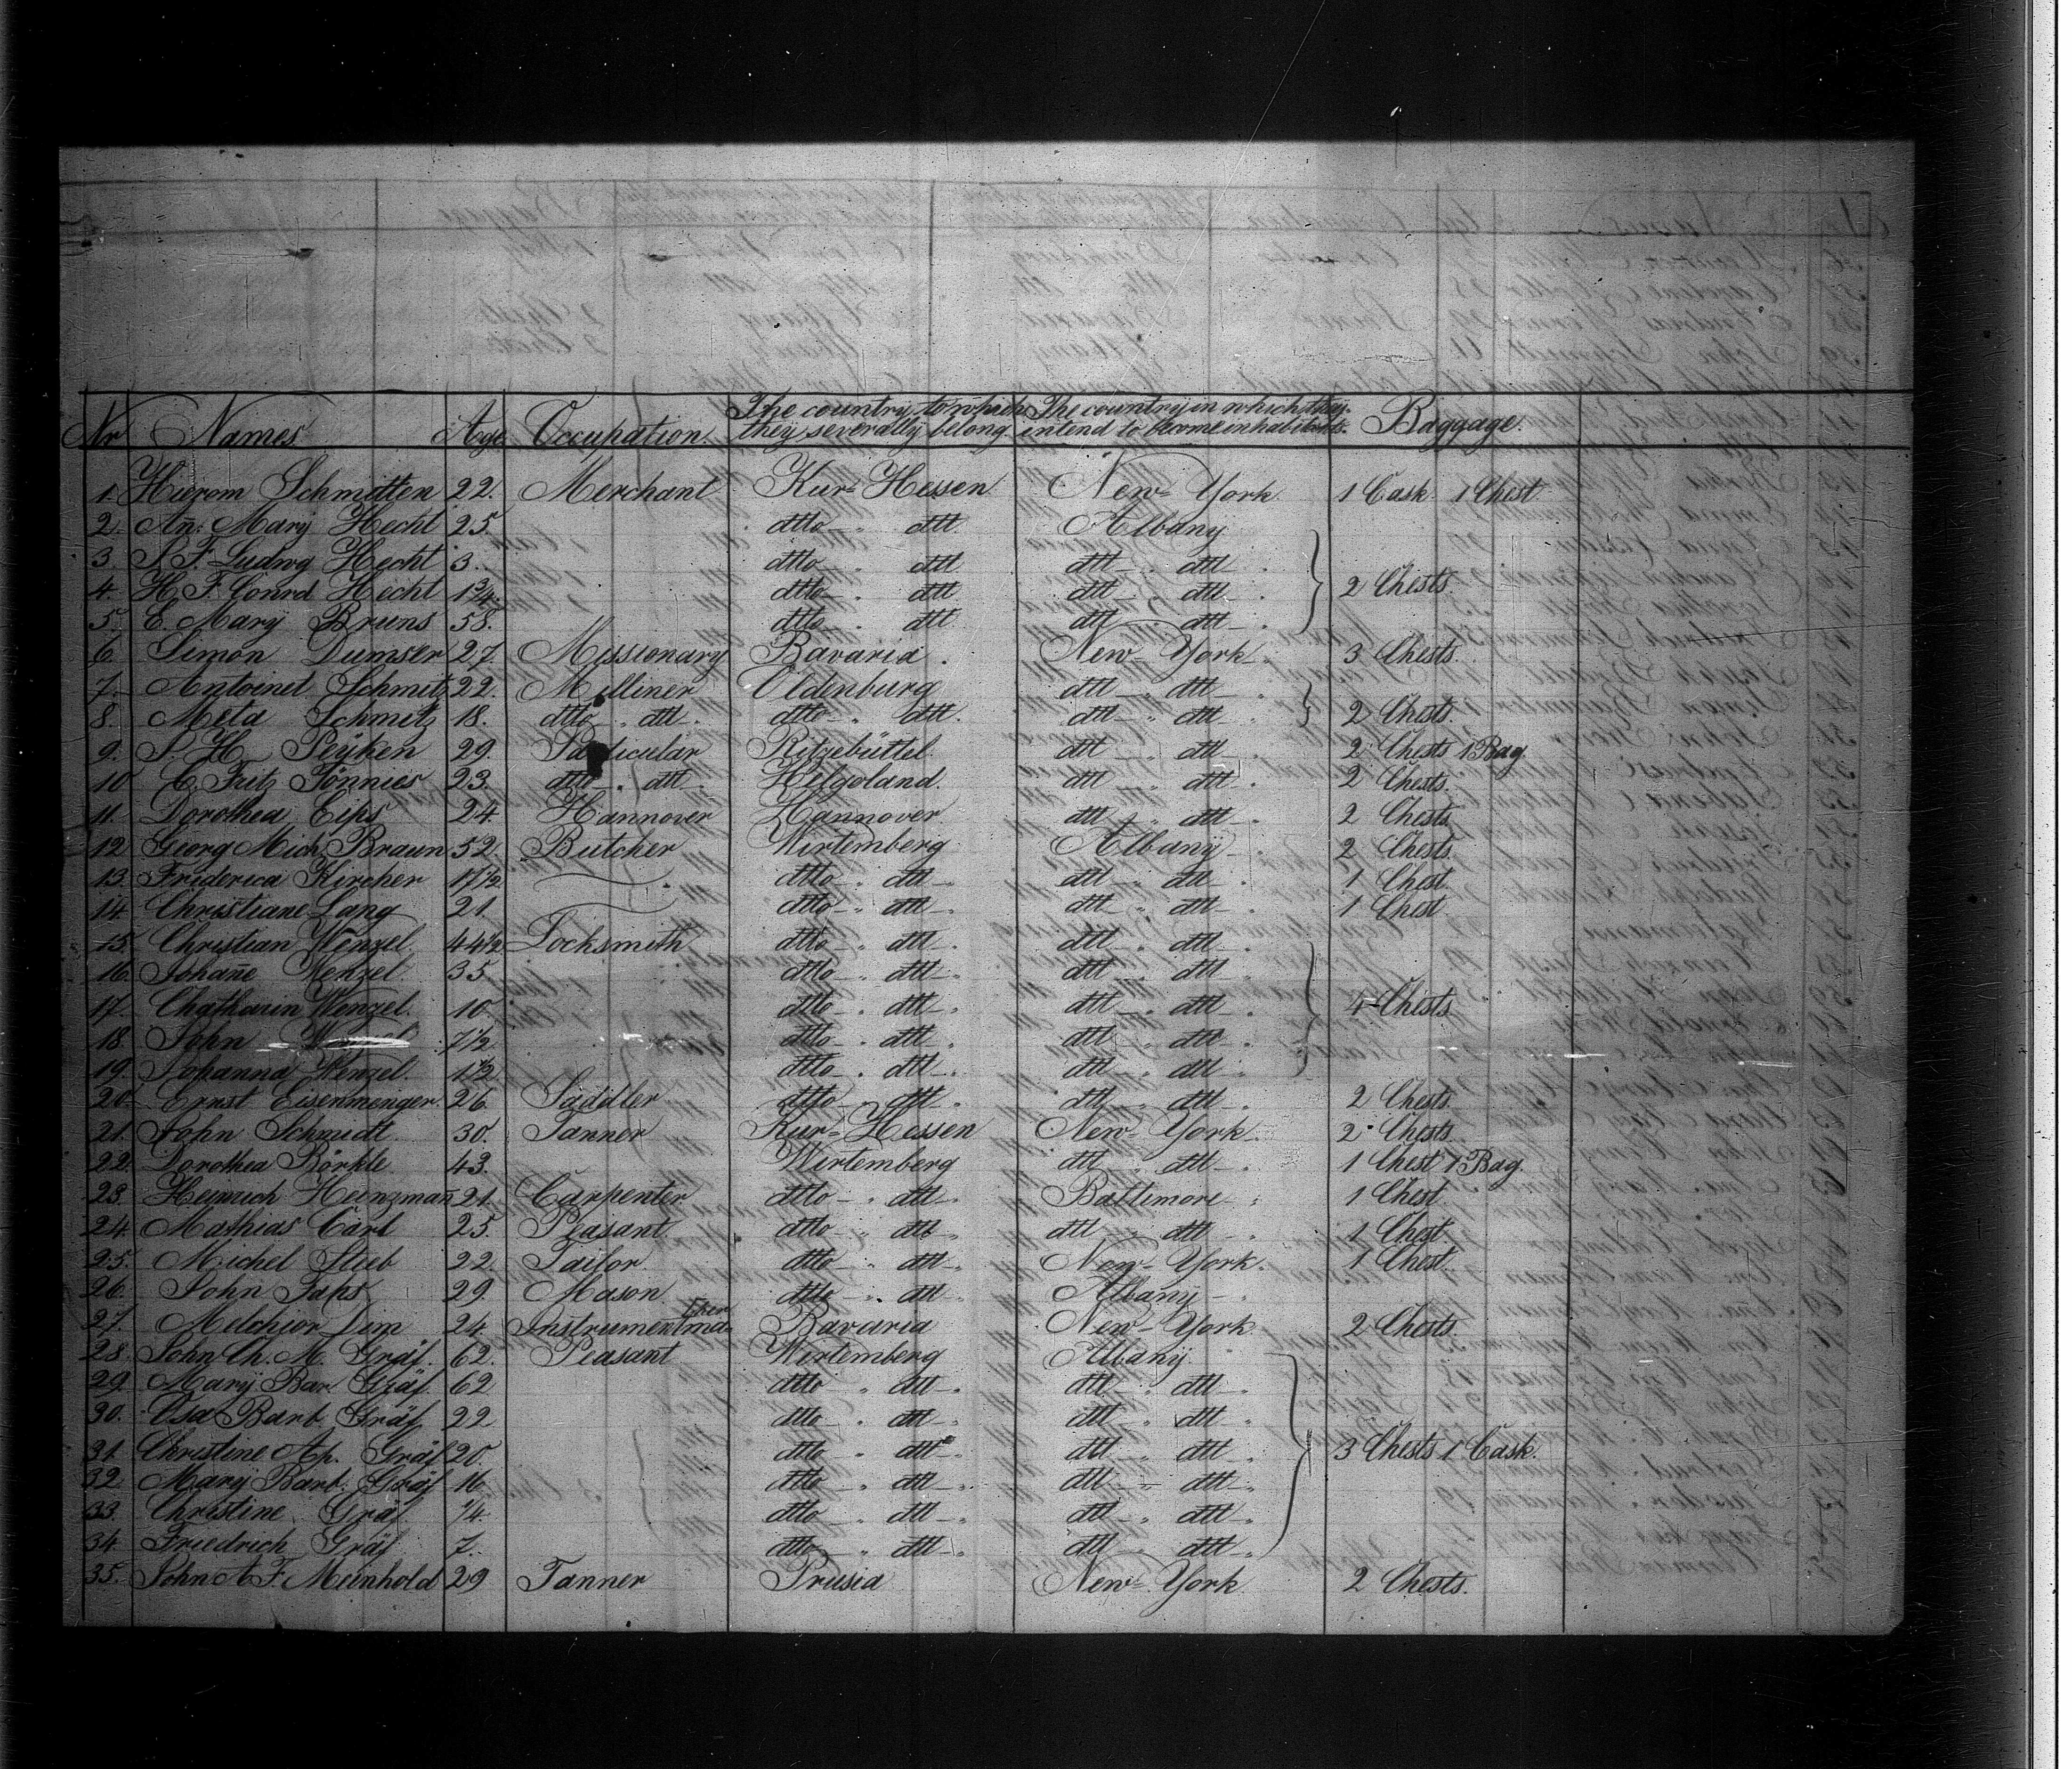 Nr Names Age Occupation. The country to which they severally belong. The country in which they intend to become inhabitants. Baggage.
1. Hierom Schmitten 22. Merchant Kur-Hessen New-York 1 Cask 1 Chest
2. An: Marÿ Hecht 25. dtto dtt Albanÿ
3. F. Ludwg Hecht 3. dtto dtt dtt dtt
4. H. F. Conrd Hecht 1 3/4. dtto dtt dtt dtt 2 Chests.
5. E. Marÿ Bruns 58. dtto dtt dtt dtt
6. Simon Dumser 27. Missionary Bavaria New-York 3 Chests.
7. Antoinet Schmitz 22. Milliner Oldenburg dtt dtt
8. Meta Schmitz 18. dtto dtt dtto dtt. dtt dtt 2 Chests.
9. H. Peÿken 29. Particulär Ritzebüttel dtt dtt 2 Chests 1 Bag
10 C. Fritz Tönnies 23. dtto dtt Helgoland. dtt dtt 2 Chests.
11. Dorothea Eips 24. Hannover Hannover dtt dtt 2 Chests
12 Georg Mich. Braun 52. Butcher Wirtemberg Albanÿ 2 Chests.
13. Friderica Kircher 17 1/2. dtto dtt dtt dtt 1 Chest.
14. Christiane Lang 21 dtto dtt dtt dtt 1 Chest.
15. Christian Wenzel. 44 1/2. Locksmith dtto dtt dtt dtt
16. Johane Wenzel 35 dtto dtt dtt dtt
17. Chatharin Wenzel. 10. dtto dtt dtt dtt 4 Chests
18. John 7 1/2 dtto dtt dtt dtt
19. Johanna Wenzel. 1 1/2. dtto dtt dtt dtt
20. Ernst Eisenmenger. 26. Saddler dtto dtt dtt dtt 2 Chests.
21. John Schmidt. 30. Tanner Kur-Hessen New-York. 2 Chests
22. Dorothea Börkle. 43. Wirtemberg dtt dtt 1 Chest 1 Bag.
23. Heinrich Heinzmañ 21. Carpenter dtto dtt Baltimore 1 Chest
24. Mathias Carl 25. Peasant dtto dtt dtt dtt 1 Chest.
25. Michel Stieb 22. Tailor. dtto dtt New-York. 1 Chest.
26. John 29 Mason dtto dtt Albanÿ
27. Melchior 24. Instrumentma Bavaria New-York 2 Chests.
28. John Ch. M. Gräf. 62. Peasant Wirtemberg Albanÿ
29. Marÿ Bar. Gräf. 62 dtto dtt dtt dtt
30. Barb Gräf. 22. dtto dtt dtt dtt
31. Christine Ap. Gräf 20. dtto dtt dtt dtt 3 Chests 1 Cask.
32. Marÿ Barb. Gräf 16 dtto dtt dtt dtt
33. Christine Gräf 1/4. dtto dtt dtt dtt
34. Friedrich Gräf 7. dtto dtt dtt dtt
35. John A F. Meinhold 29 Tanner Prusia New-York 2 Chests.